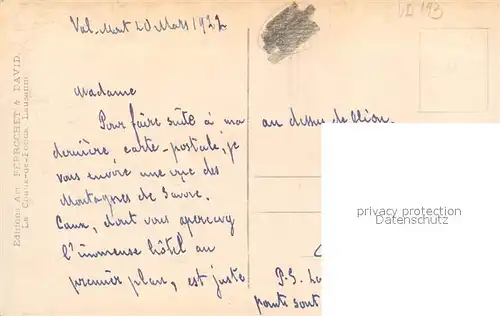 Val-Mont 20 Mars 1922
VD 193
Madame
Pour faire suite à ma
dernière carte-postale, je
vous envoie une vue des
Montagnes de Savoie.
Caux, dont vous apercevez
l'immense hôtel au
premier plan, est juste
au dessus de Glion.
P.S. La
points sont
Editions Art. PERROCHET & DAVID.
La Chaux-de-Fonds Lausanne
privacy protection
Datenschutz